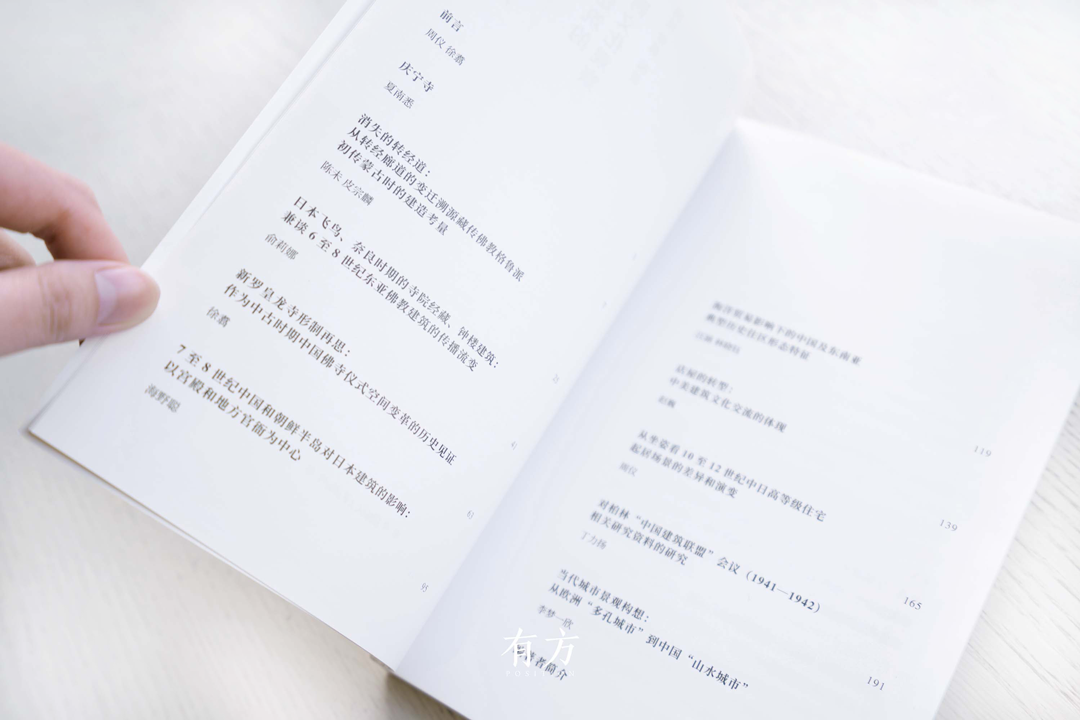 前言
周仪 徐翥
庆宁寺
夏南悉
消失的转经道：
从转经廊道的变迁溯源藏传佛教格鲁派
初传蒙古时的建造考量
陈未 皮宗麟
日本飞鸟、奈良时期的寺院经藏、钟楼建筑：
兼谈 6 至 8 世纪东亚佛教建筑的传播流变
俞莉娜
新罗皇龙寺形制再思：
作为中古时期中国佛寺仪式空间变革的历史见证
徐翥
7 至 8 世纪中国和朝鲜半岛对日本建筑的影响：
以宫殿和地方官衙为中心
海野聪
95
影响下的中国及东南亚
历史住区形态特征
119
的转型：
中美建筑文化交流的体现
139
从坐姿看 10 至 12 世纪中日高等级住宅
起居场景的差异和演变
周仪
165
对柏林“中国建筑联盟”会议（1941—1942）
相关研究资料的研究
丁力扬
191
当代城市景观构想：
从欧洲“多孔城市”到中国“山水城市”
李梦一欣
著者简介
有方